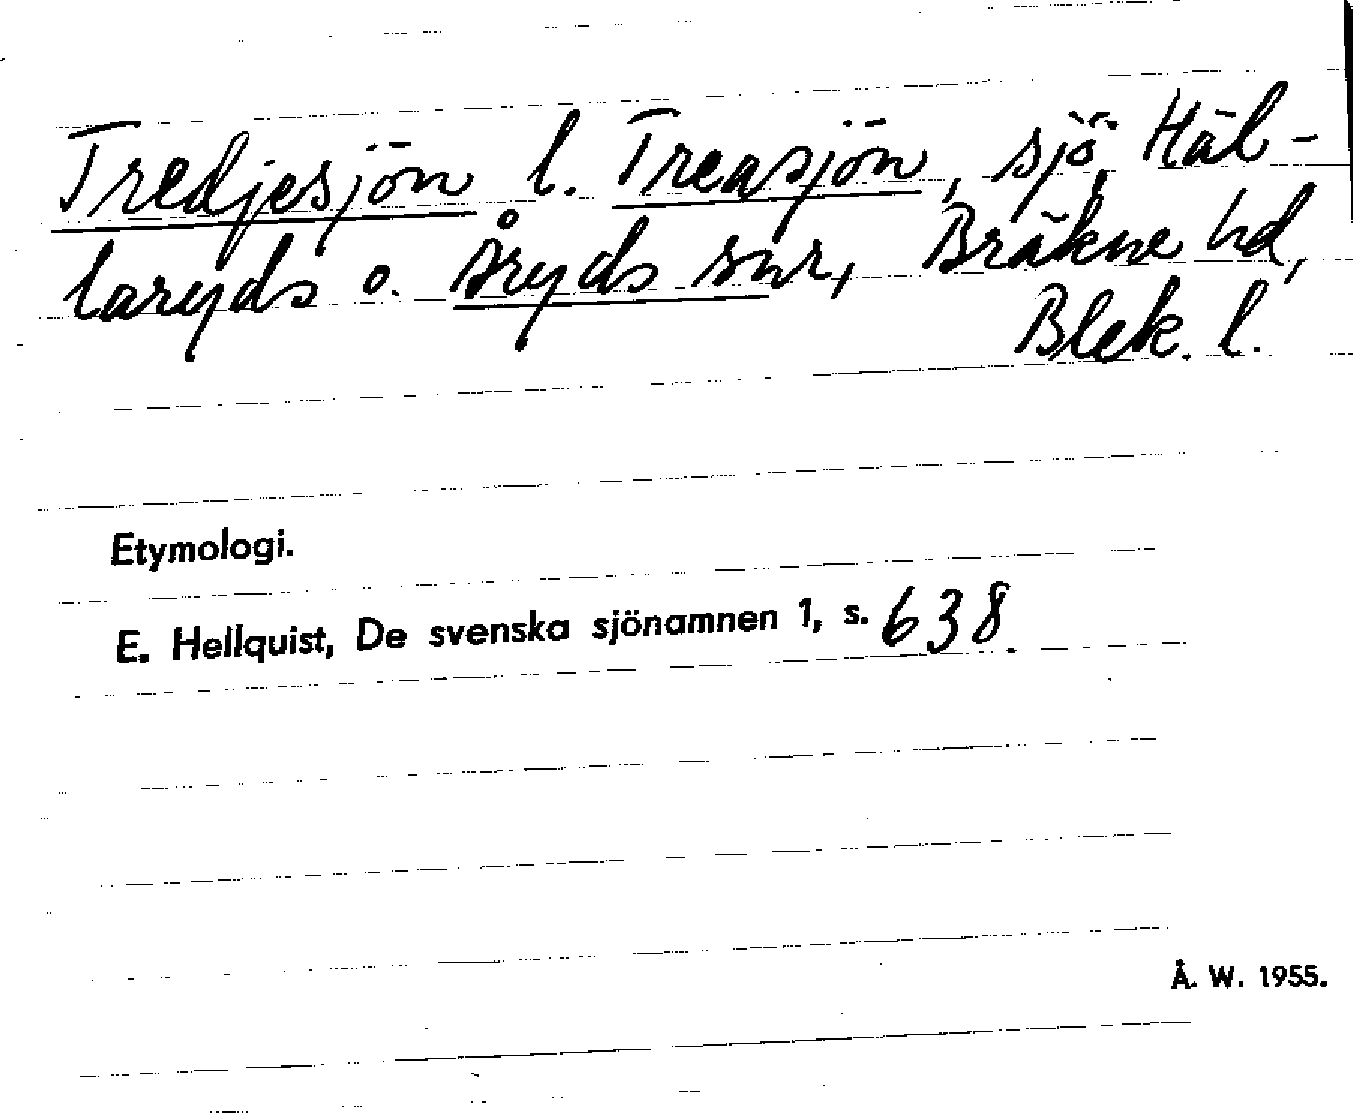 Tredjesjön l. Treasjön, sjö, Häl-
laryds o. Åryds snr, Bräkne hd,
Blek. l.
Etymologi.
E. Hellquist, De svenska sjönamnen 1, s. 638.
Å. W. 1955.